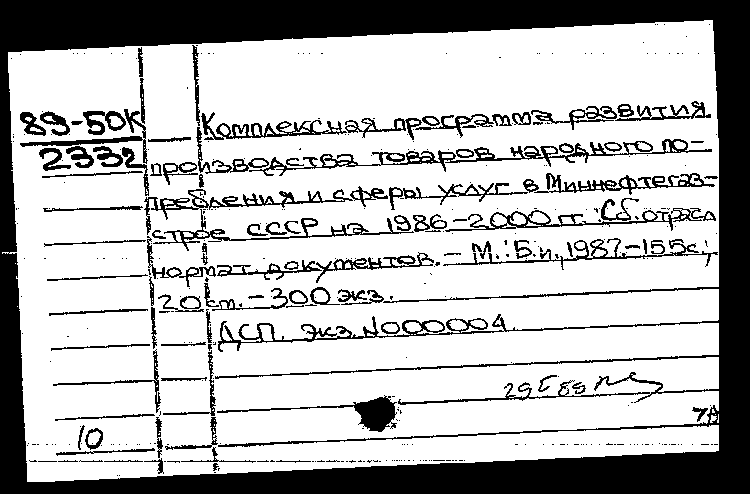 89-50К
233г
Комплексная программа развития
производства товаров народного по-
требления и сферы услуг в Миннефтегаз-
строе СССР на 1986-2000 гг. : Сб. отрасл
нормат. документов. - М. : Б.и., 1987. - 155с.;
20 см. - 300 экз.
ДСП. Экз. №000004
29 I 89
10